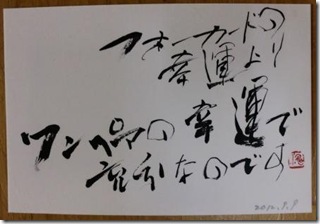 フォーカードの
幸運より
ワンペアの幸運で
充分なのです
2012.9.9